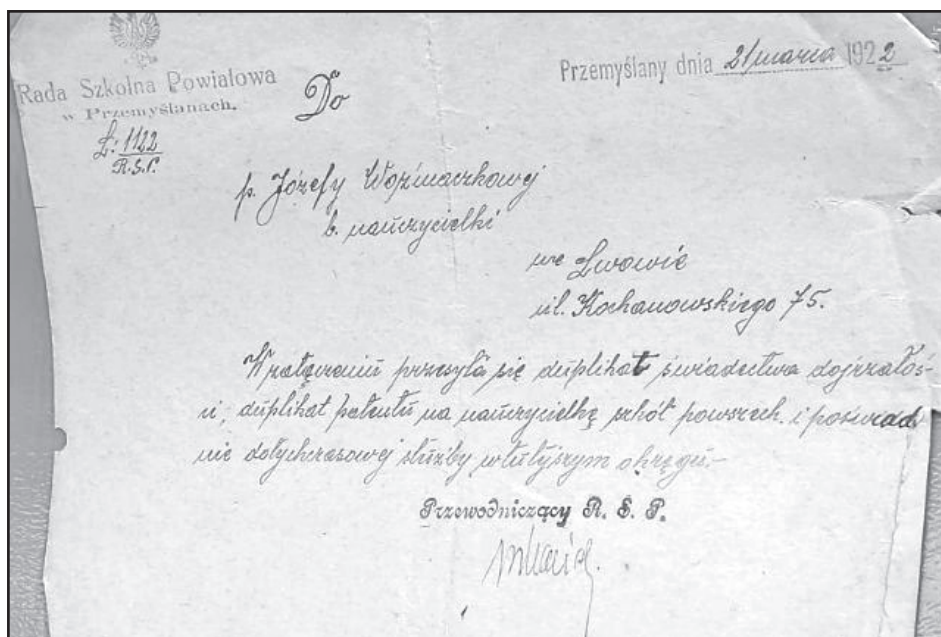 Rada Szkolna Powiatowa
w Przemyślanach.
Ł: 1122
R.S.P.
Przemyślany dnia 21/marca 1922
Do
p. Józefy Woźniaczkowej
b. nauczycielki
we Lwowie
ul. Kochanowskiego 75.
W załączeniu przesyła się duplikat świadectwa dojrzałoś-
ci, duplikat patentu na nauczycielkę szkół powszech. i poświad
nie dotychczasowej służby w tutyszym okręgu.-
Przewodniczący R. S. P.